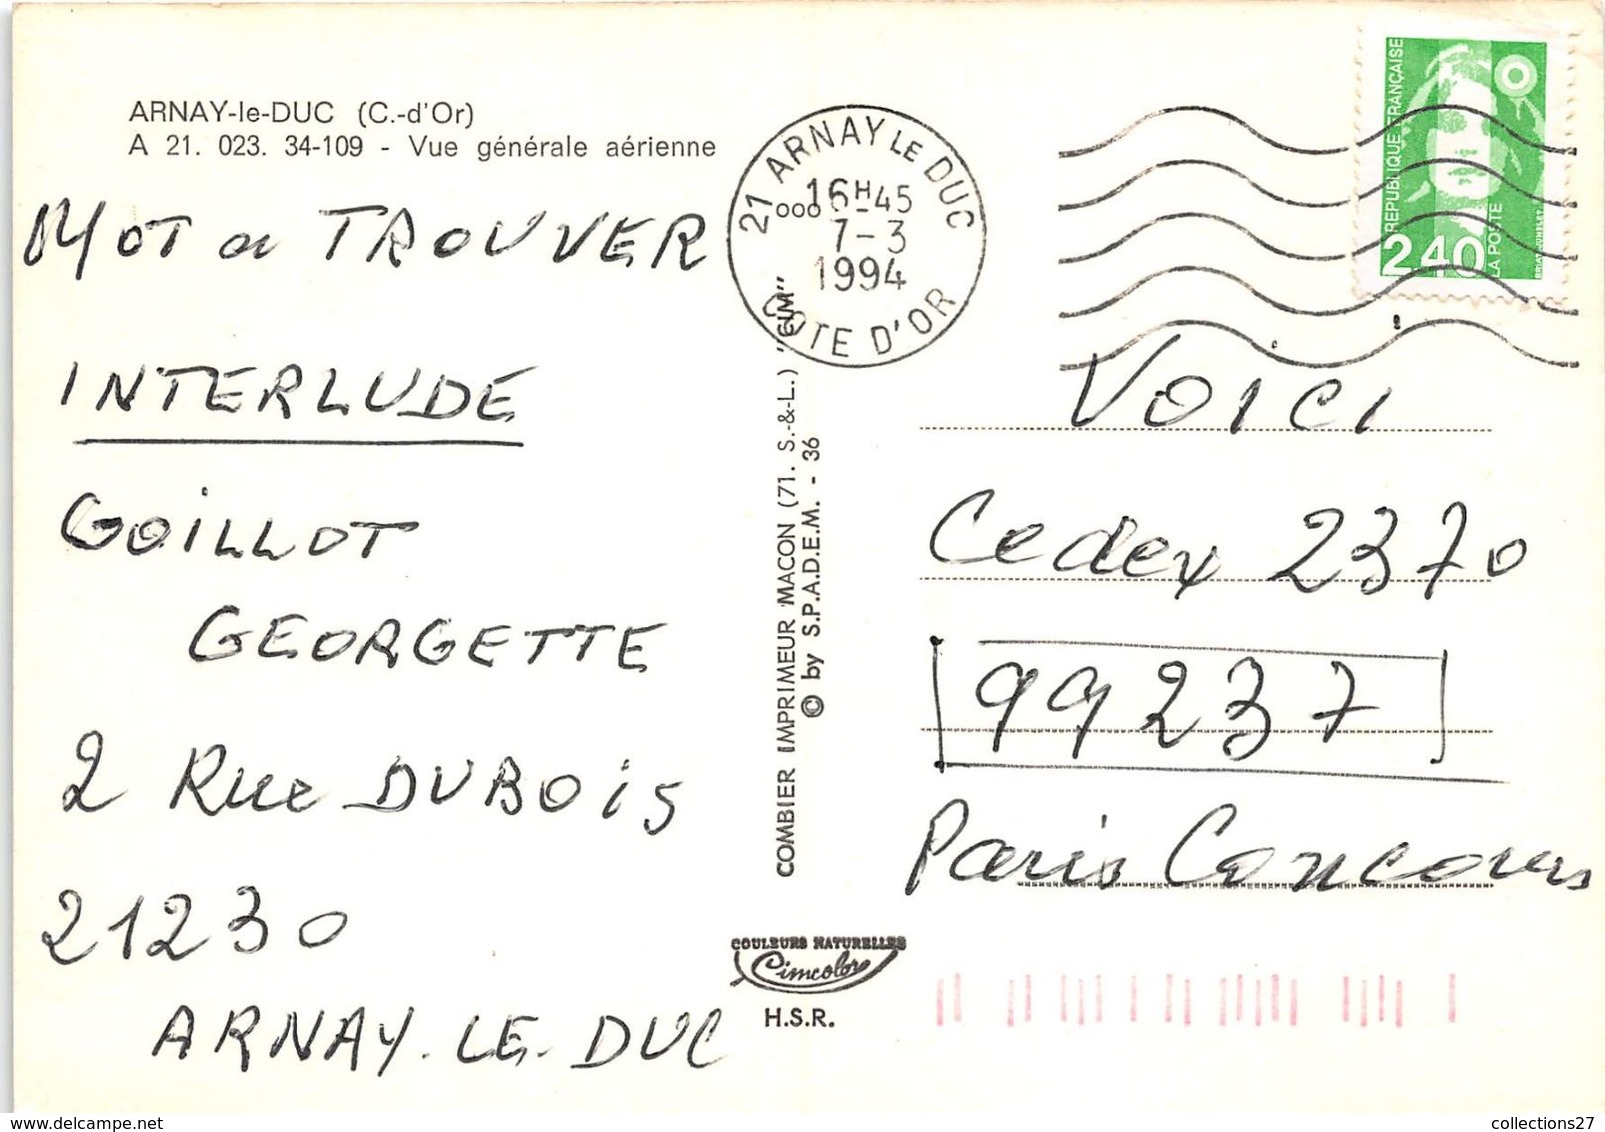 ARNAY-le-DUC (C.-d'Or)
A 21. 023. 34-109 - Vue générale aérienne
MOT a TROUVER
INTERLUDE
GOILLOT
GEORGETTE
2 Rue DUBOIS
21230
ARNAY-LE-DUC
21 ARNAY LE DUC
16H45
7-3
1994
COTE D'OR
COMBIER IMPRIMEUR MACON (71. S.-&-L.) "CIM"
© by S.P.A.D.E.M. - 36
COULEURS NATURELLES
Cimcolor
H.S.R.
REPUBLIQUE FRANÇAISE
2,40
LA POSTE
VOICI
Cedex 2370
99237
Paris Concours
collections27